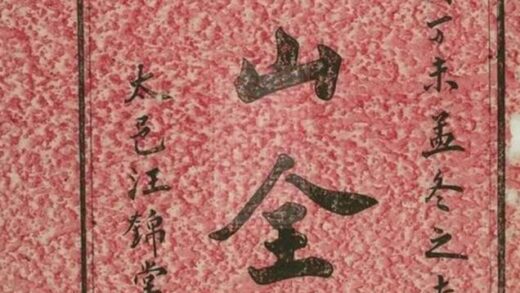 丁未孟冬之
山全
太邑汪錦堂